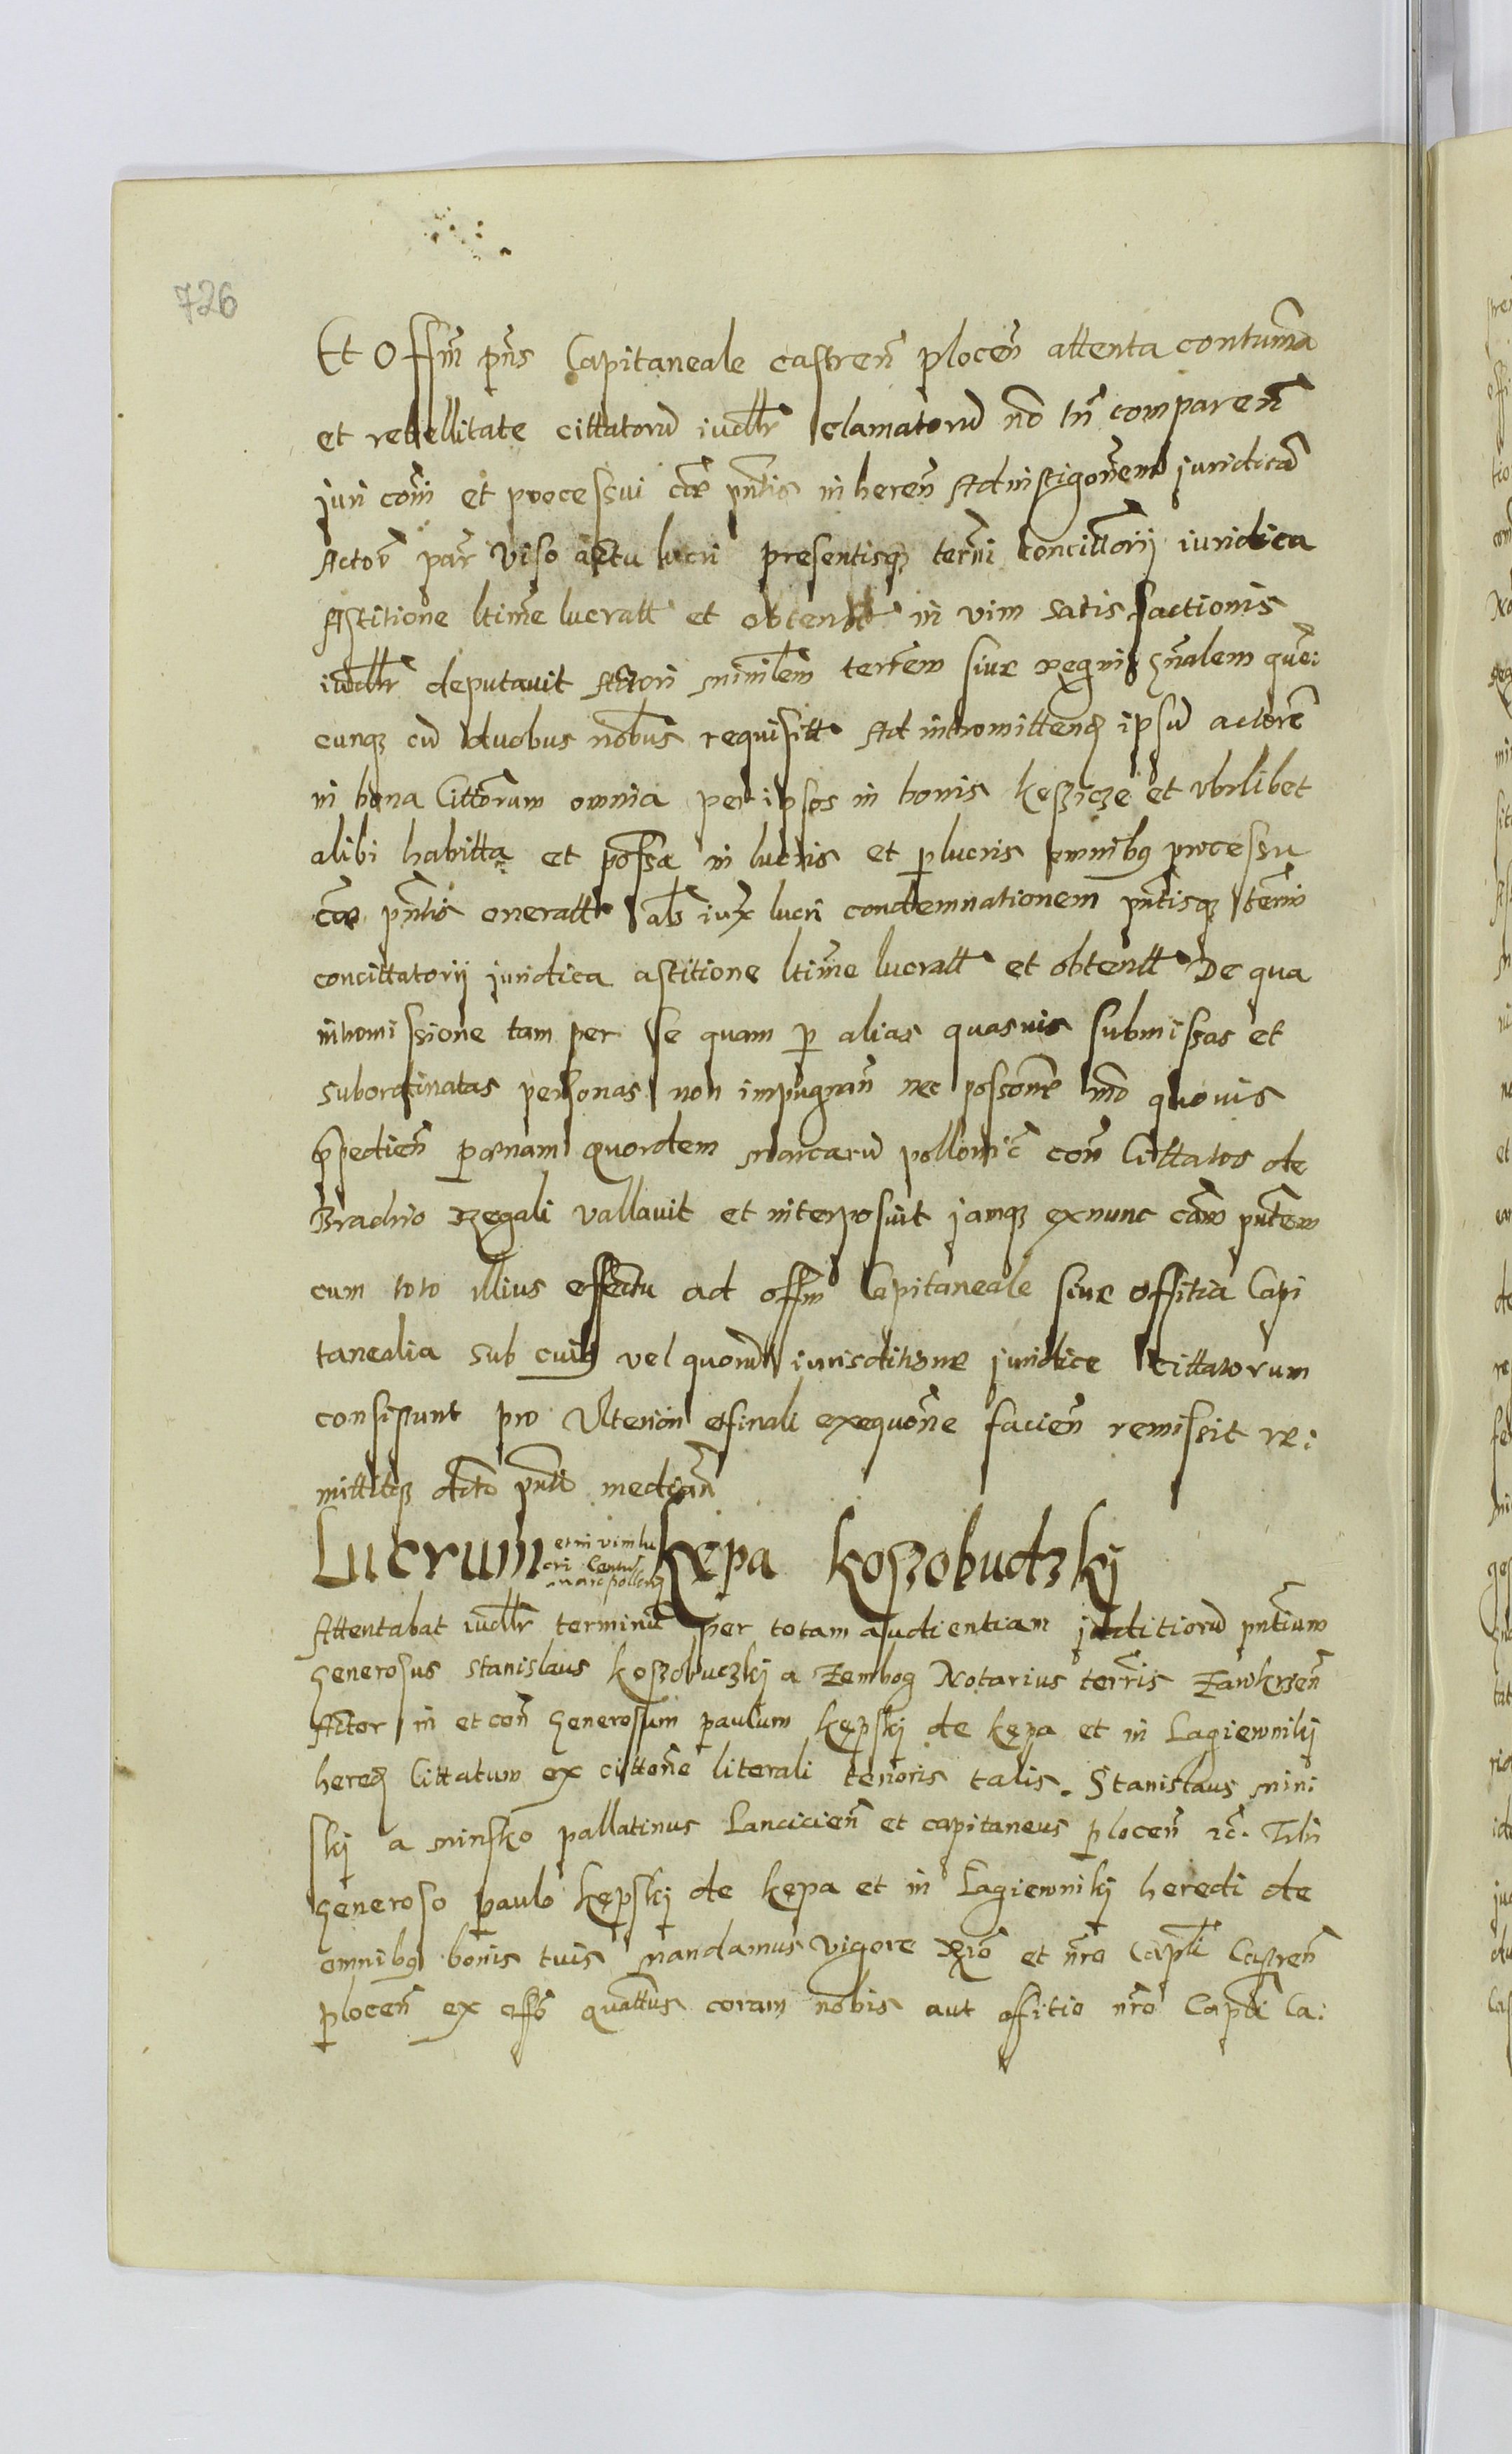 726
Et Offm̃ pñs Capitaneale castreñ ploceñ attenta contumã
et rebellitate cittatorũ iudllr̃ clamatorũ nõ tñ compareñ
juri com̃i et processui cãe pñtis inhereñ Ad instigõnem juridicã
Actor̃ par̃ viso actu lucri presentisq̨ ter̃mi concitt̃orij iuridica
Astitione ltim̃e lucratt et obtentt in vim satisfactionis
iudllr̃ deputavit Actori minil̃em terr̃em sive Regni gñalem quẽ:
cunq̨ cũ duobus nobus requisitt Ad intromittend̨ ipsũ actorẽ
in bona Cittõrum omnia per ipsos in bonis kessicze et vbilibet
alibi habitta et possa in lucris et p lucris omnibq̨ processu
cãe pñtis oneratt als iux̃ lucri condemnationem pñtisq̨ ter̃mi
concittatorij juridica astitione ltim̃e lucratt et obtentt De qua
intromissione tam per se quam p alias quasuis submissas et
subordinatas personas non impugnañ nec possõne mõ quovis
p̱pedieñ pœnam quordem marcarũ pollonic̃ coñ Cittatos de
Brachio Regali vallavit et interposuit jamq̨ exnunc cãm pñtem
cum toto illius effectu ad offm̃ Capitaneale sive offitia Capi
tanealia sub cuiq̨ vel quorũ iurisditione juridice cittatorum
consistunt pro Vlteriori et finali exequõne facieñ remissit re:
mittitq̨ dcto pñtti mediañ
Lucrum et in vim lu
cri Centũ
marc pollong Kępa Koszobudzkj
Attentabat iudllr̃ terminũ per totam audientiam juditiorũ pñtium
Generosus Stanislaus koszobuczkj a Zembog Notarius terr̃is Zawkrzeñ
Actor in et coñ Generosum paulum Kępskj de kępa et in Lagiewnikj
hered̨ Cittatum ex cittõne literali tenoris talis. Stanislaus mini
skj a minsko pallatinus Lancicieñ et capitaneus ploceñ ꝛc̃. Tibi
Generoso paulo kępskj de kępa et in Lagiewnikj heredi de
omnibq̨ bonis tuis mandamus vigore Rio et nr̃e Capli Castreñ
ploceñ ex offo quattus coram nobis aut offitio nr̃o Capli Ca: